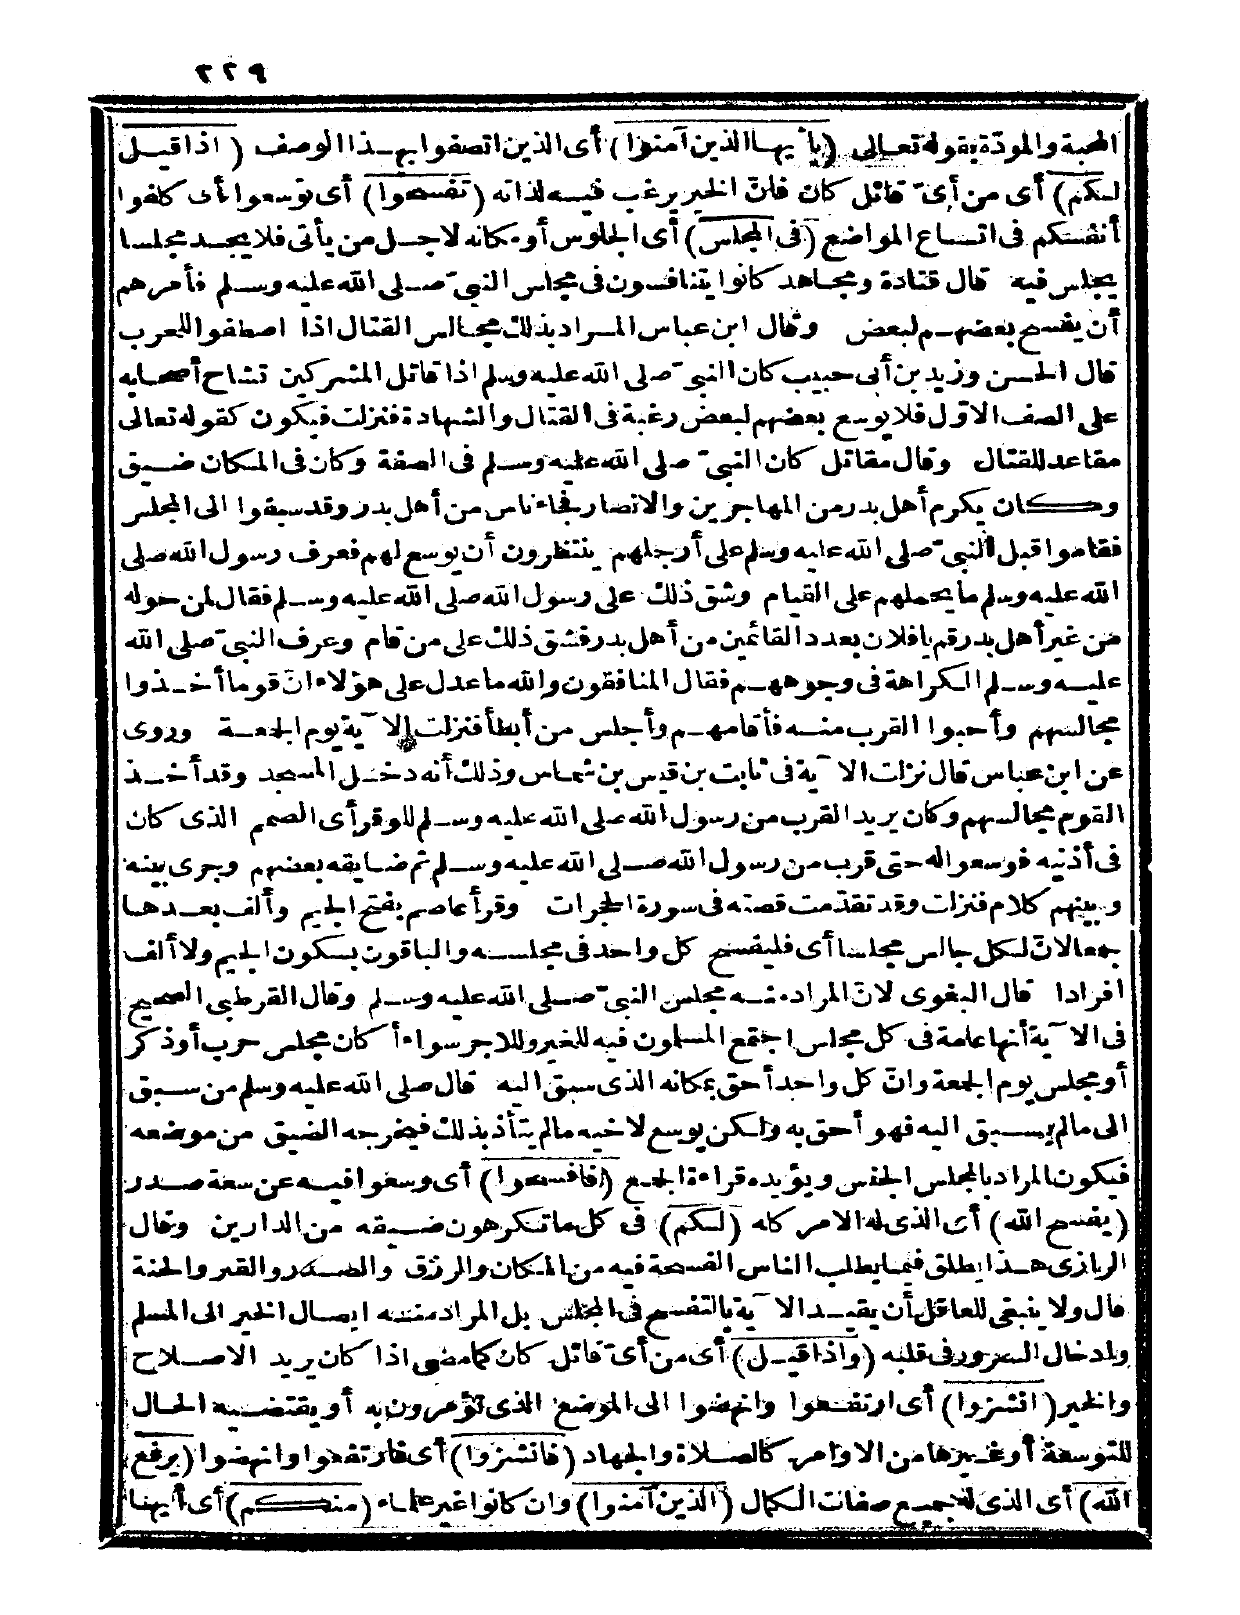 ٢٢٩
المحبة والمودّة بقوله تعالى (يا أيها الذين آمنوا) أى الذين اتصفوا بهذا الوصف (اذا قيل
لكم) أى من أىّ قائل كان فانّ الخير يرغب فيه لذاته (تفسحوا) أى توسعوا أى كلفوا
أنفسكم فى اتساع المواضع (فى المجلس) أى الجلوس أو مكانه لاجل من يأتى فلا يجد مجلسا
يجلس فيه قال قتادة ومجاهد كانوا يتنافسون فى مجلس النبىّ صلى الله عليه وسلم فأمرهم
أن يفسح بعضهم لبعض وقال ابن عباس المراد بذلك مجالس القتال اذا اصطفوا للحرب
قال الحسن وزيد بن أبى حبيب كان النبىّ صلى الله عليه وسلم اذا قاتل المشركين تشاح أصحابه
على الصف الاوّل فلا يوسع بعضهم لبعض رغبة فى القتال والشهادة فنزلت فيكون كقوله تعالى
مقاعد للقتال وقال مقاتل كان النبىّ صلى الله عليه وسلم فى الصفة وكان فى المكان ضيق
وكان يكرم أهل بدر من المهاجرين والانصار فجاء ناس من أهل بدر وقد سبقوا الى المجلس
فقاموا قبل النبىّ صلى الله عليه وسلم على أرجلهم ينتظرون أن يوسع لهم فعرف رسول الله صلى
الله عليه وسلم ما يحملهم على القيام وشق ذلك على رسول الله صلى الله عليه وسلم فقال لمن حوله
من غير أهل بدر قم يا فلان بعدد القائمين من أهل بدر فشق ذلك على من قام وعرف النبىّ صلى الله
عليه وسلم الكراهة فى وجوههم فقال المنافقون والله ما عدل على هؤلاء انّ قوما أخذوا
مجالسهم وأحبوا القرب منه فأقامهم وأجلس من أبطأ فنزلت الآية يوم الجمعة وروى
عن ابن عباس قال نزلت الآية فى ثابت بن قيس بن شماس وذلك أنه دخل المسجد وقد أخذ
القوم مجالسهم وكان يريد القرب من رسول الله صلى الله عليه وسلم للوقر أى الصمم الذى كان
فى أذنيه فوسعوا له حتى قرب من رسول الله صلى الله عليه وسلم ثم ضايقه بعضهم وجرى بينه
وبينهم كلام فنزلت وقد تقدّمت قصته فى سورة الحجرات وقرأ عاصم بفتح الجيم وألف بعدها
جمعا لانّ لكل جالس مجلسا أى فليفسح كل واحد فى مجلسه والباقون بسكون الجيم ولا ألف
افرادا قال البغوى لانّ المراد منه مجلس النبىّ صلى الله عليه وسلم وقال القرطبى الصحيح
فى الآية أنها عامة فى كل مجلس اجتمع المسلمون فيه للخير وللاجر سواء أ كان مجلس حرب أو ذكر
أو مجلس يوم الجمعة وانّ كل واحد أحق بمكانه الذى سبق اليه قال صلى الله عليه وسلم من سبق
الى ما لم يسبق اليه فهو أحق به ولكن يوسع لاخيه ما لم يتأذ بذلك فيخرجه الضيق من موضعه
فيكون المراد بالمجلس الجنس ويؤيده قراءة الجمع (فافسحوا) أى وسعوا فيه عن سعة صدر
(يفسح الله) أى الذى له الامر كله (لكم) فى كل ما تكرهون ضيقه من الدارين وقال
الرازى هذا يطلق فيما يطلب الناس الفسحة فيه من المكان والرزق والصدر والقبر والجنة
قال ولا ينبغى للعاقل أن يقيد الآية بالتفسح فى المجلس بل المراد منه ايصال الخير الى المسلم
وادخال السرور فى قلبه (واذا قيل) أى من أىّ قائل كان كما مضى اذا كان يريد الاصلاح
والخير (انشزوا) أى ارتفعوا وانهضوا الى الموضع الذى تؤمرون به أو يقتضيه الحال
للتوسعة أو غيرها من الاوامر كالصلاة والجهاد (فانشزوا) أى فارتفعوا وانهضوا (يرفع
الله) أى الذى له جميع صفات الكمال (الذين آمنوا) وان كانوا غير علماء (منكم) أى أيها